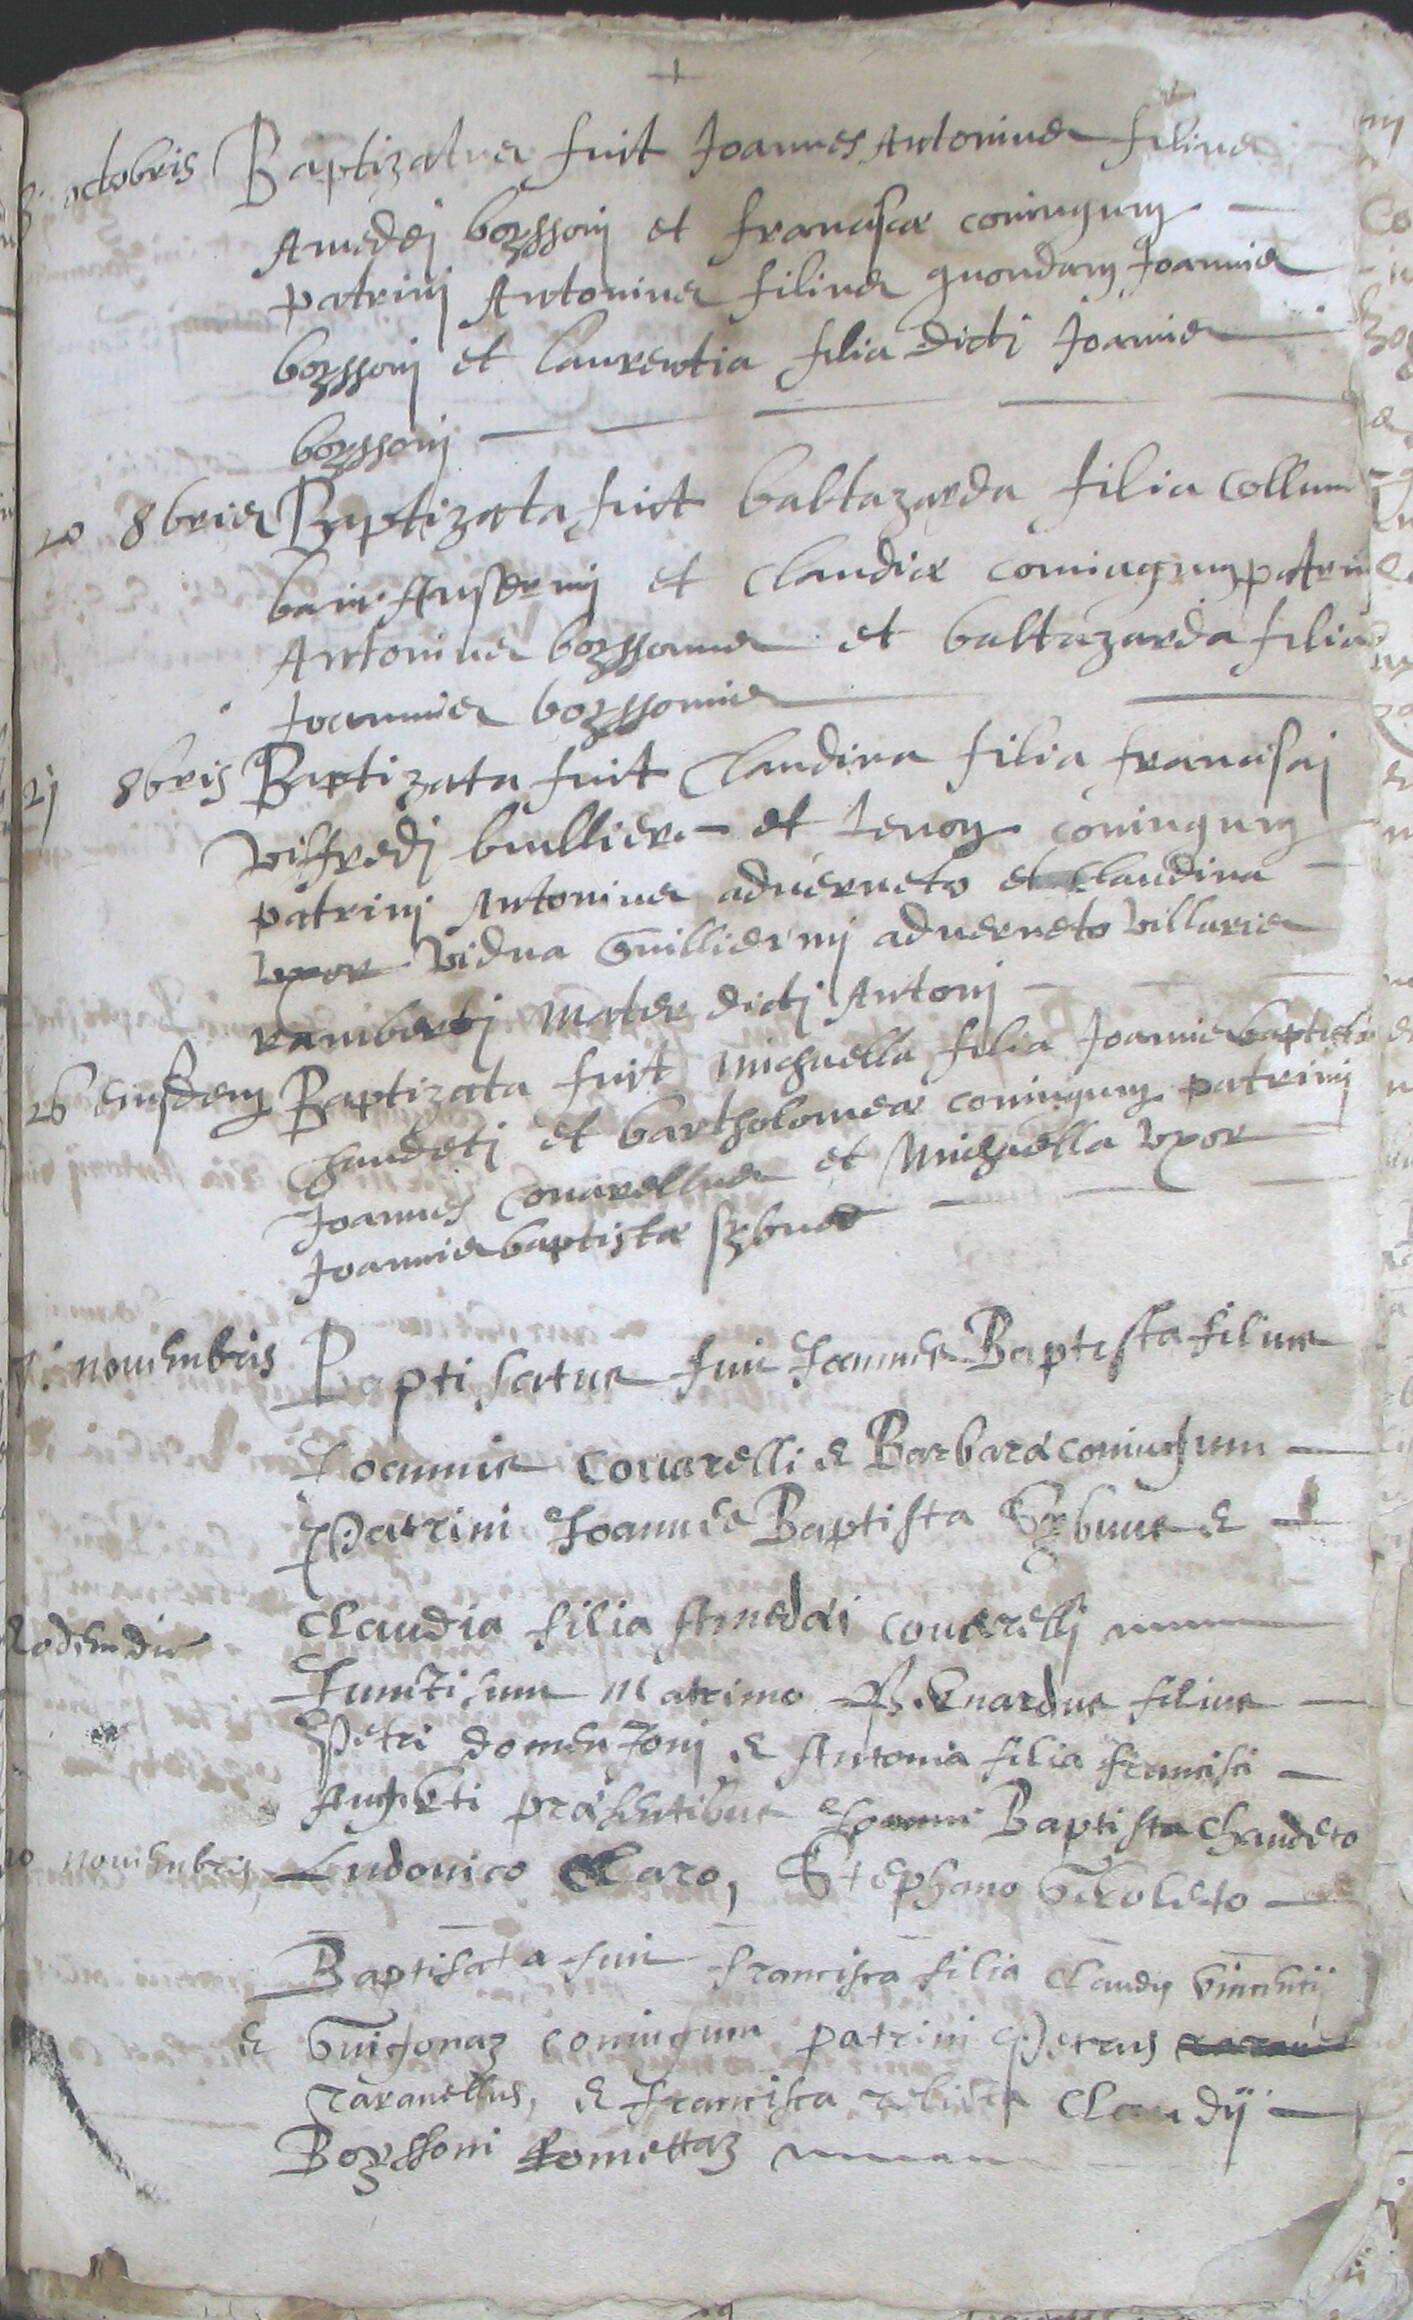 octobris Baptizatus fuit Joannes Antonius filius
Amedej boyssonj et franciscæ coniugum
patrinj Antonius filius quondam Joannis
boyssonj et laurentia filia dictj Joannis
boyssonj
20 8bris Baptizata fuit baltazarda filia Collum
banj Ansermj et Claudiæ coniugum patrin
Antonius boyssonus et baltazarda filia
Joannis boyssonis
21 8bris Baptizata fuit Claudina filia francisci
vifredj et coniugum
patrinj Antonius adverneto et Claudina
vxor vidua Guilliermj adverneto villaris
rambertj mater dictj Antonj
26 eiusdem Baptizata fuit Michaella filia Joannis baptistæ
chaudetj et bartholomeæ coniugum patrinj
Joannes Covarellus et Michaella vxor
Joannis baptistæ
novembris Baptisatus fuit Joannes Baptista filius
Joannis Covarelli & Barbaræ coniugum
Patrini Joannes Baptista &
Claudia filia Amedæi Coverellj
Eodem die Juncti sunt matrimo Bernardus filius
Petri & Antonia filia francisci
præsentibus Joanni Baptista Chaudeto
10 novembris Ludovico Claro, Stephano
Baptisata fuit francisca filia Claudij Vincentij
& Guigonaz coniugum patrini Petrus
ravanellus, & francisca relicta Claudij
Boyssoni